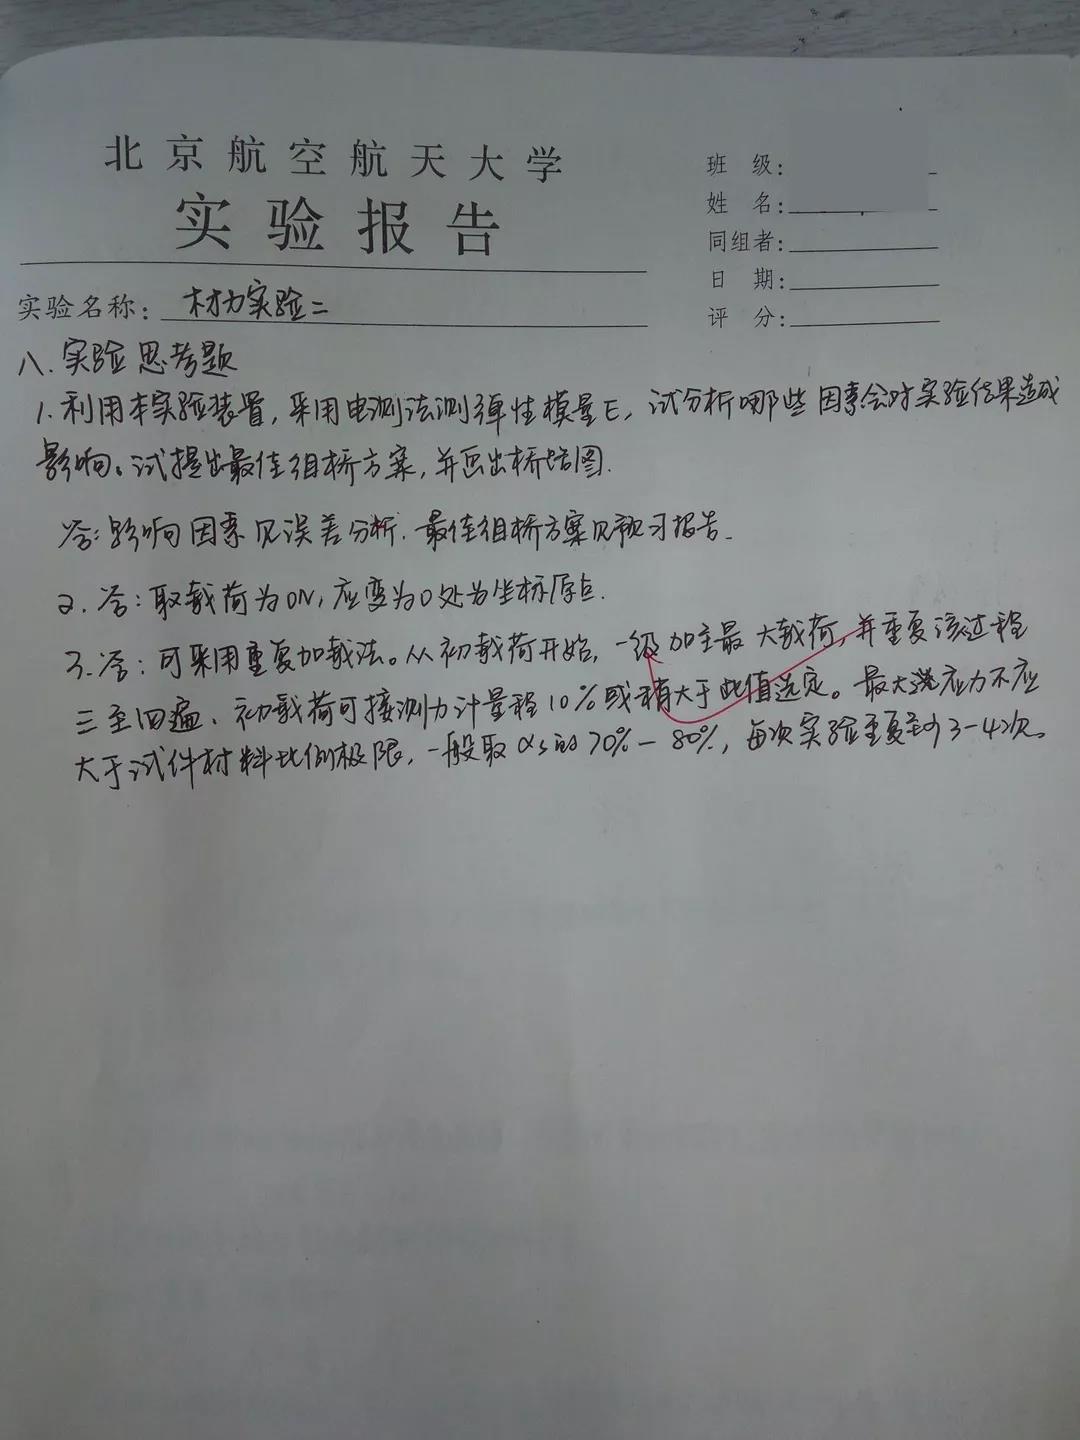 北京航空航天大学
实验报告
班 级:
姓 名:
同组者:
日 期:
评 分:
实验名称: 材力实验二
八.实验思考题
1.利用本实验装置,采用电测法测弹性模量E,试分析哪些因素会对实验结果造成
影响。试提出最佳组桥方案,并画出桥路图.
答:影响因素见误差分析.最佳组桥方案见预习报告.
2.答:取载荷为0N,应变为0处为坐标原点.
3.答:可采用重复加载法。从初载荷开始,一级加至最大载荷,并重复该过程
三至四遍.初载荷可按测力计量程10%或稍大于此值选定。最大应力不应
大于试件材料比例极限,一般取 的70%-80%,每次实验重复至少3-4次。